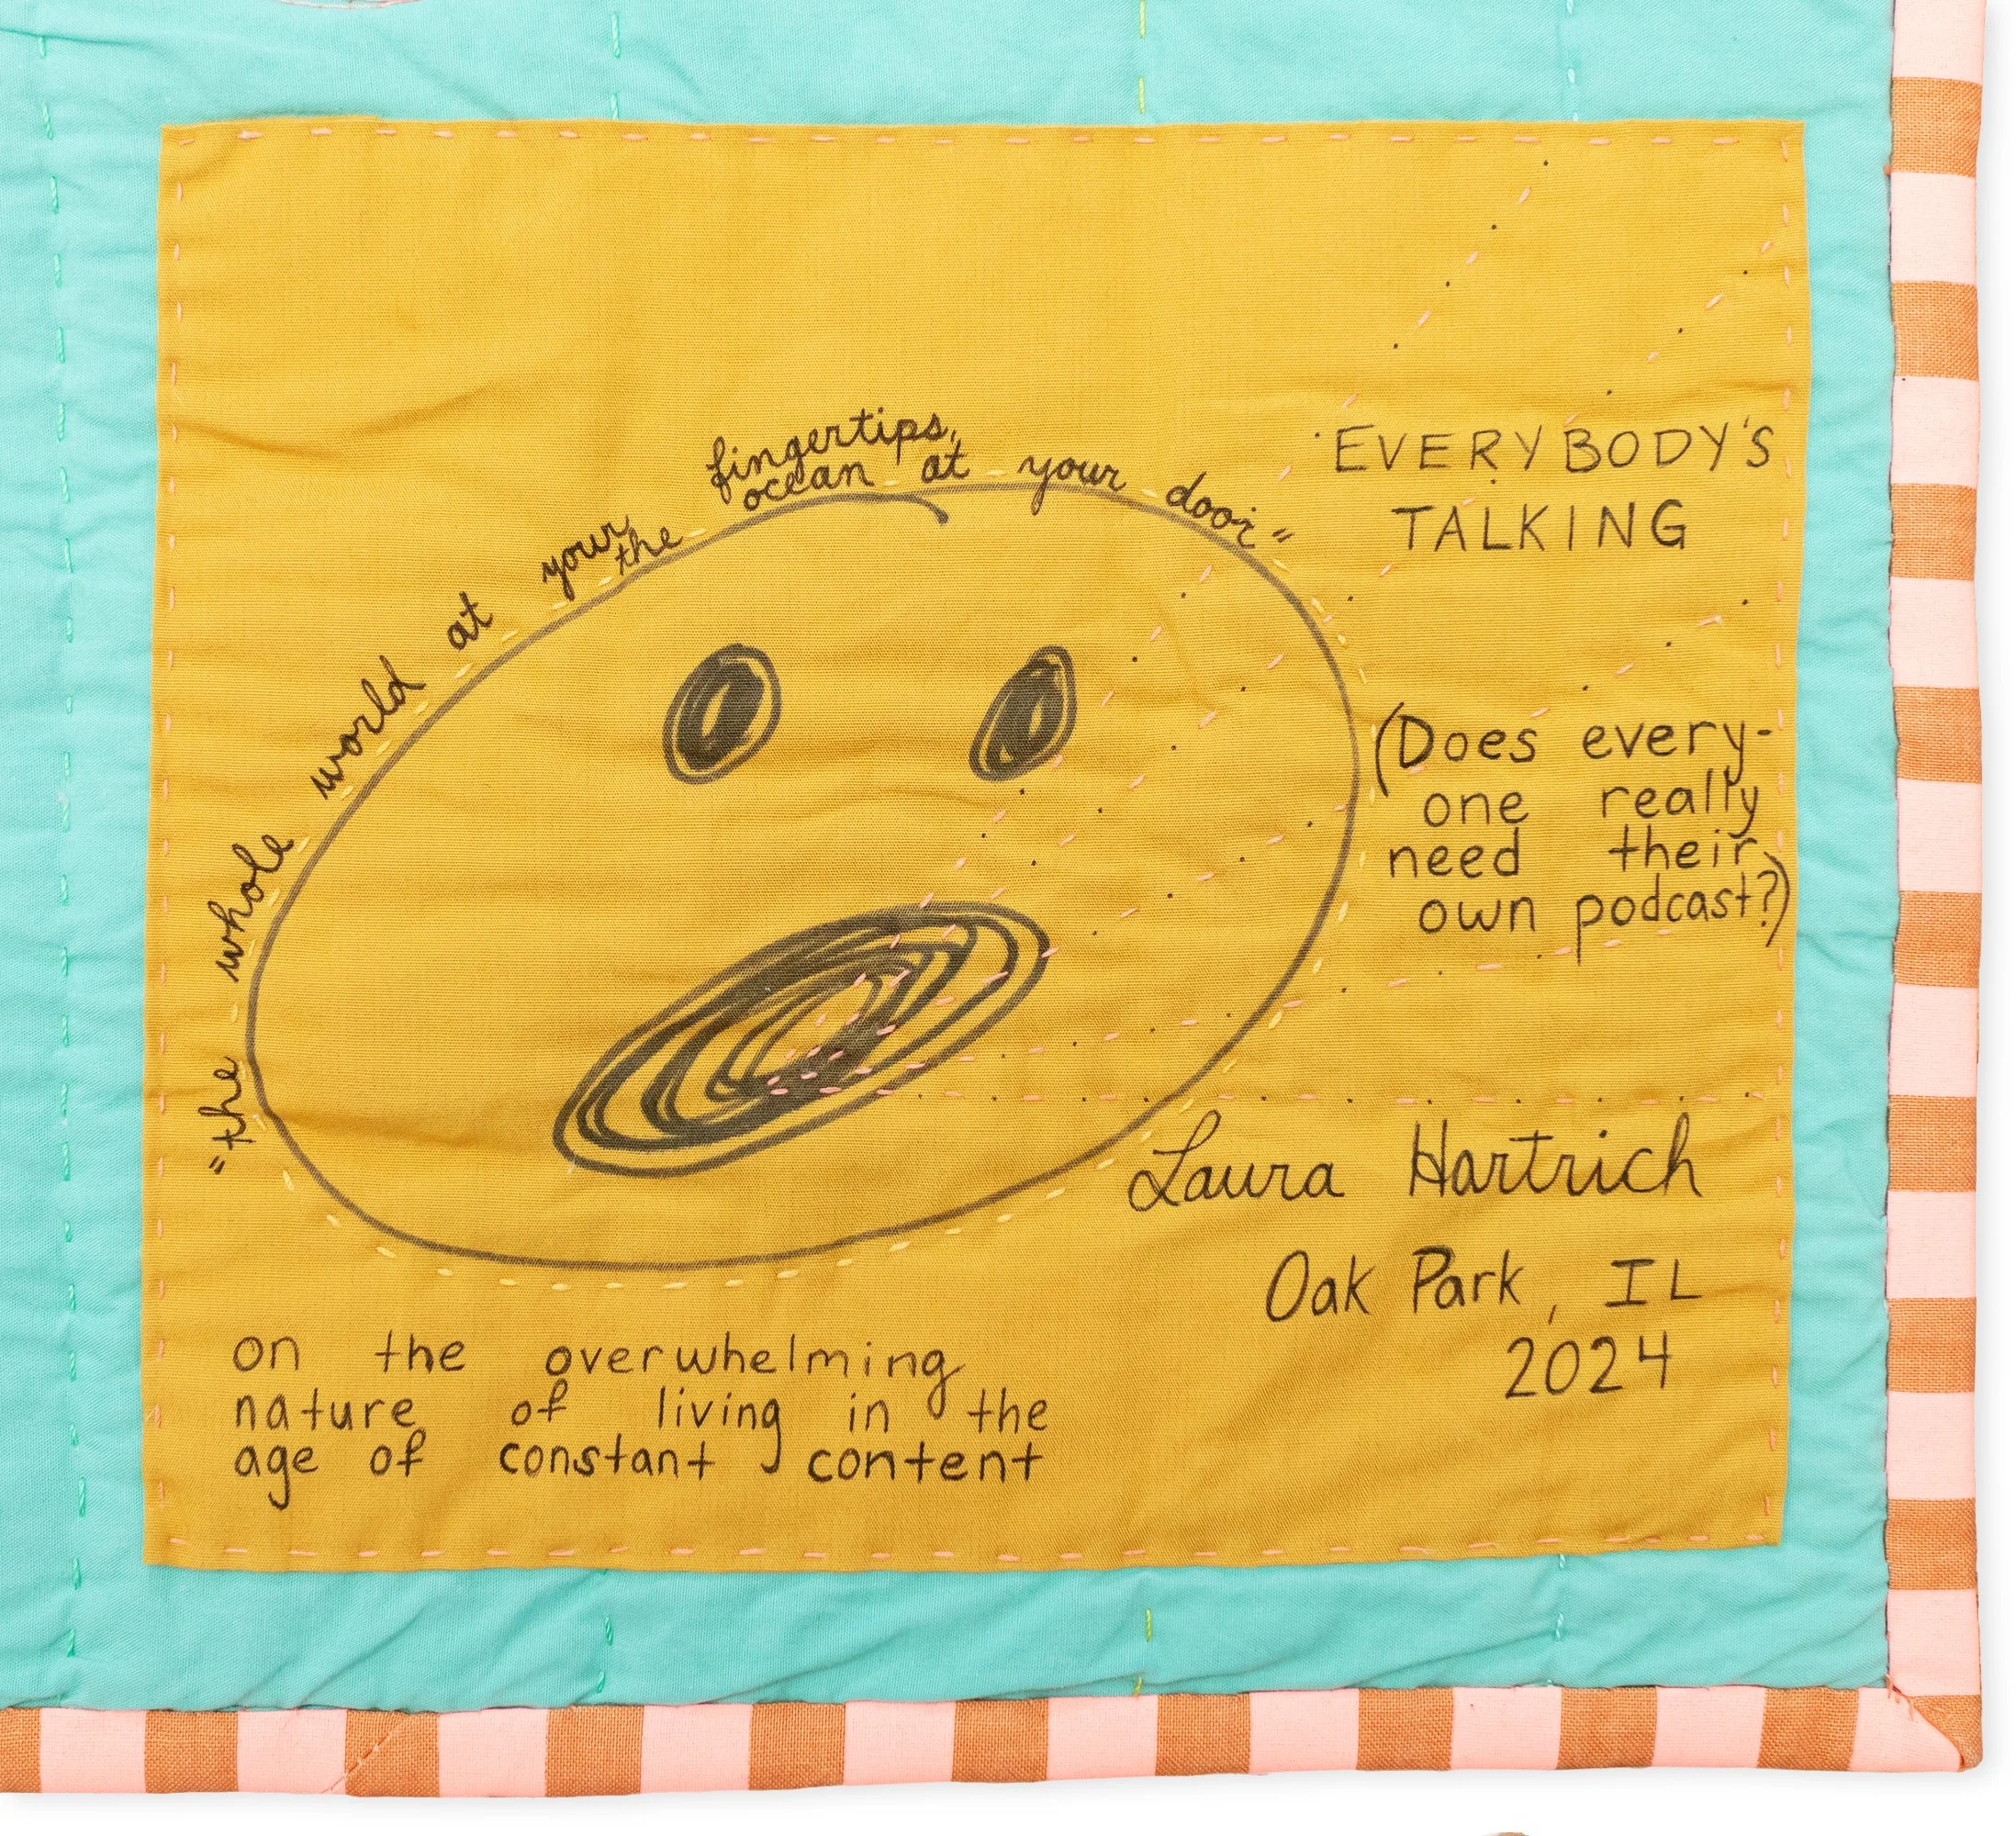 "the whole world at your fingertips,
the ocean at your door"
EVERYBODY'S
TALKING
(Does every-
one really
need their
own podcast?)
Laura Hartrich
Oak Park, IL
2024
on the overwhelming
nature of living in the
age of constant content